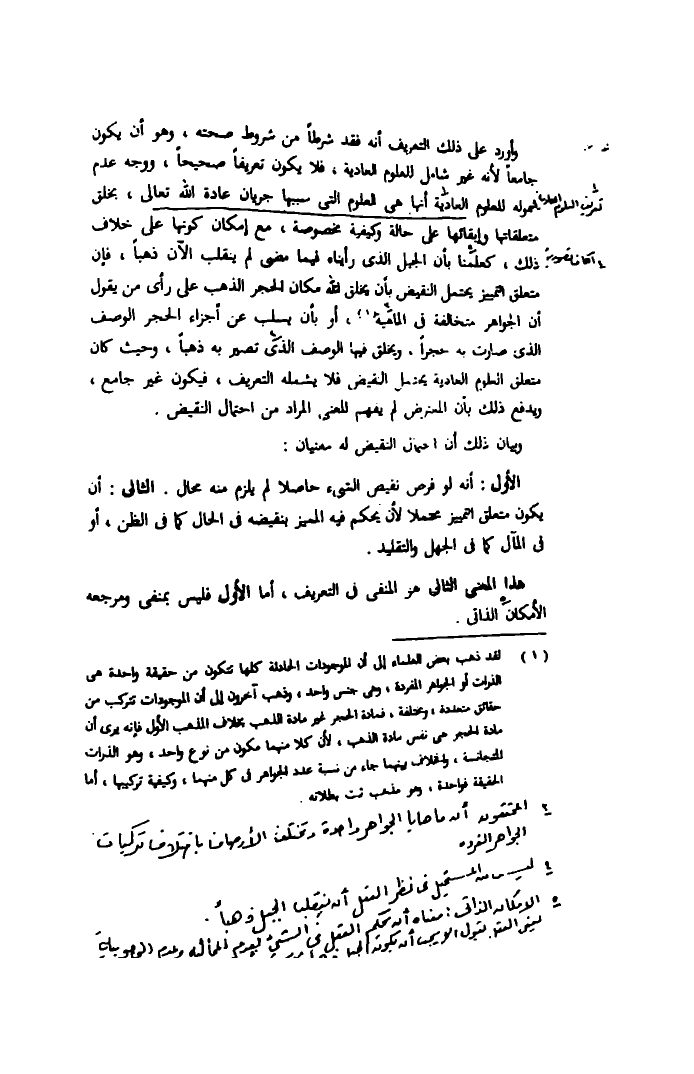 وأورد على ذلك التعريف أنه فقد شرطاً من شروط صحته ، وهو أن يكون
جامعاً لأنه غير شامل للعلوم العادية ، فلا يكون تعريفاً صحيحاً ، ووجه عدم
شموله للعلوم العادية أنها هى العلوم التى سببها جريان عادة الله تعالى ، بخلق
متعلقاتها وإبقائها على حالة وكيفية مخصوصة ، مع إمكان كونها على خلاف
ذلك ، كعلمنا بأن الجبل الذى رأيناه فيما مضى لم ينقلب الآن ذهباً ، فإن
متعلق التمييز يحتمل النقيض بأن يخلق الله مكان الحجر الذهب على رأى من يقول
أن الجواهر متخالفة فى الماهية (١) ، أو بأن يسلب عن أجزاء الحجر الوصف
الذى صارت به حجراً . ويخلق فيها الوصف الذى تصير به ذهباً ، وحيث كان
متعلق العلوم العادية يحتمل النقيض فلا يشمله التعريف ، فيكون غير جامع ،
ويدفع ذلك بأن المعترض لم يفهم المعنى المراد من احتمال النقيض .
وبيان ذلك أن احتمال النقيض له معنيان :
الأول : أنه لو فرص نفيص الشىء حاصلا لم يلزم منه محال . الثانى : أن
يكون متعلق التمييز محتملا لأن يحكم فيه المميز بنقيضه فى الحال كما فى الظن ، أو
فى المآل كما فى الجهل والتقليد .
هذا المعنى الثانى هو المنفى فى التعريف ، أما الأول فليس بمنفى ومرجعه
الأمكان الذاتى .
(١) لقد ذهب بعض العلماء إلى أن الموجودات الحادثة كلها تتكون من حقيقة واحدة هى
الذرات أو الجواهر المفردة ، وهى جنس واحد ، وذهب آخرون إلى أن الموجودات تتركب من
حقائق متعددة ، ومختلفة ، فمادة الحجر غير مادة الذهب بخلاف المذهب الأول فإنه يرى أن
مادة الحجر هى نفس مادة الذهب ، لأن كلا منهما مكون من نوع واحد ، وهو الذرات
المتجانسة ، والخلاف بينهما جاء من نسبة عدد الجواهر فى كل منهما ، وكيفية تركيبها ، أما
الحقيقة فواحدة ، وهو مذهب ثبت بطلانه .
الجواهر واحدة وتختلف الأوصاف باختلاف تركيبات
الجواهر الفرده
٤ ليس من المستحيل فى نظر العقل أن ينقلب الجبل ذهباً .
٥ الإمكان الذاتى : معناه أن يحكم العقل فى الشىء بعدم